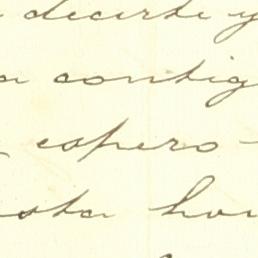 decirte y
a contig
espero
sta hor